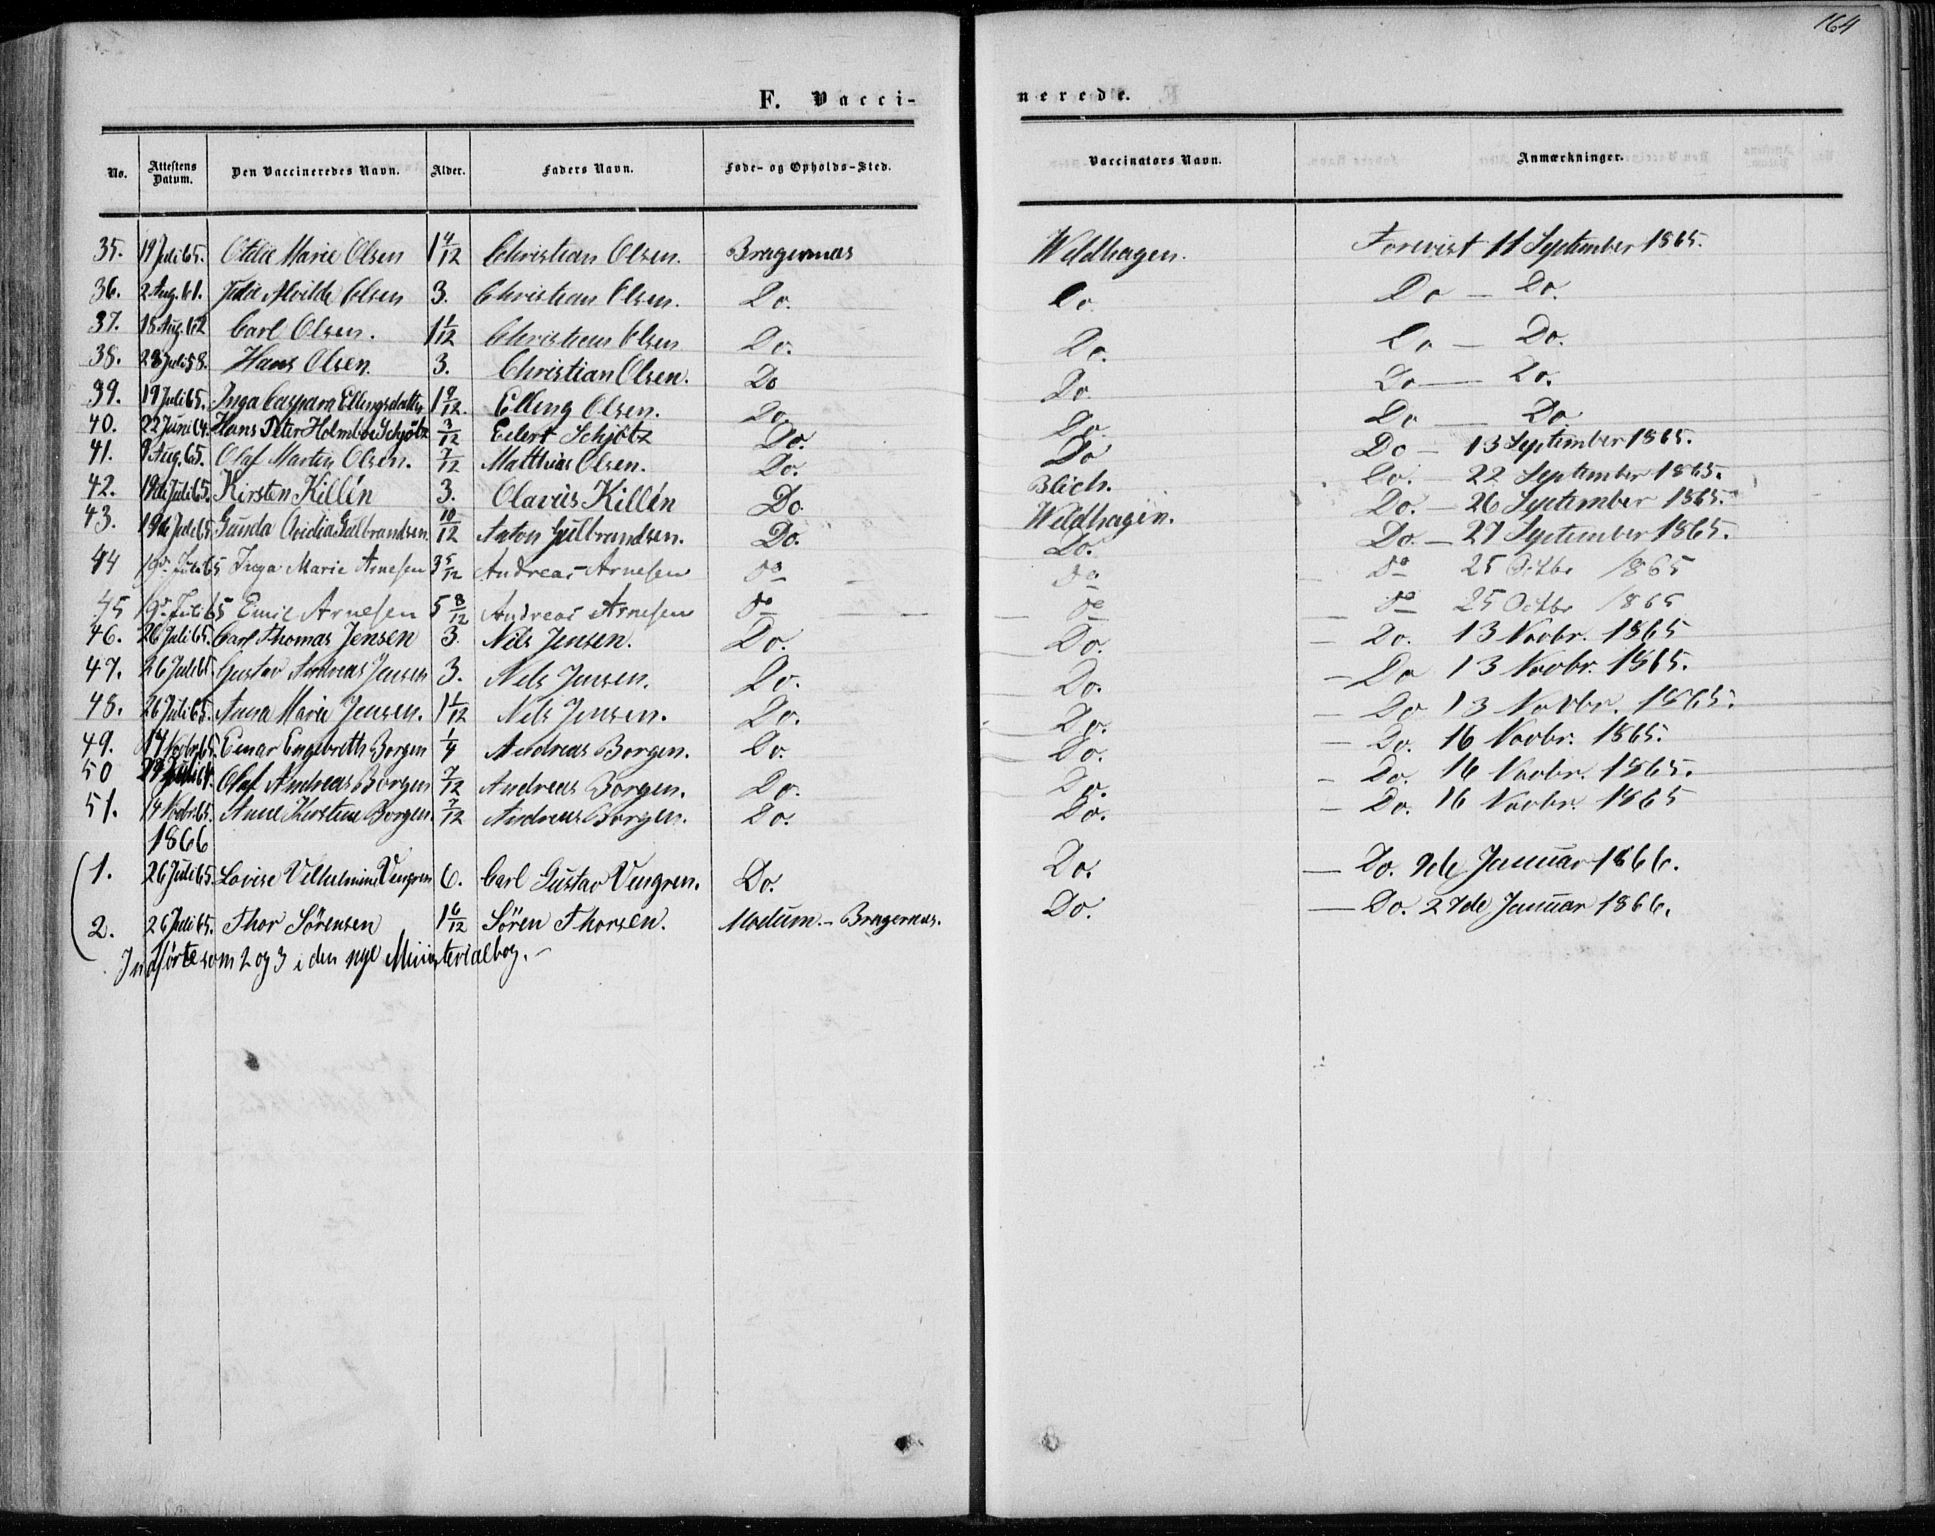 164
F. Vacci-
nerede.
No. Attestens Datum. Den Vaccineredes Navn. Alder. Faders Navn. Føde- og Opholds-Sted. Vaccinators Navn. Anmærkninger.
35. 19 Juli 65. Otilie Marie Olsen 1 4/12 Christian Olsen. Bragernæs Weldhagen. Forevist 11 September 1865.
36. 2 Aug. 61. Julie Alvilde Olsen 3. Christian Olsen. Do. Do. Do — Do.
37. 18 Aug. 62 Carl Olsen. 1 1/12 Christian Olsen Do. Do. Do — Do.
38. 28 Juli 58. Hans Olsen. 3. Christian Olsen. Do Do Do — Do.
39. 19 Juli 65. Inga Caspara Ellingsdatter 1 9/12. Elling Olsen. Do. Do. Do — Do
40. 22 Juni 64. Hans Peter Holmboe Schjötz 3/12 Eilert Schjötz Do. Do Do — 13 September 1865.
41. 9 Aug. 65. Olaf Martin Olsen. 7/12 Matthias Olsen. Do. Blich. Do. — 22 September 1865.
42. 19de Juli 65. Kirsten Killén 3. Olavus Killén Do. Weldhagen. Do. — 26 September 1865.
43. 19de Juli 65 Gunda Ovidia Gulbrandsen. 10/12 Anton Gulbrandsen. Do. Do. Do. — 27 September 1865.
44 19de Juli 65 Inga Marie Arnesen 3 5/12 Andreas Arnesen do do do 25 Octbr 1865
45 19de Juli 65 Emil Arnesen 5 8/12 Andreas Arnesen do do do 25 Octbr 1865
46. 26 Juli 65. Carl Thomas Jensen 3. Nils Jensen. Do. Do. — Do. 13 Novbr. 1865
47. 26 Juli 65. Gustav Andreas Jensen 3. Nils Jensen. Do. Do. — Do 13 Novbr. 1865.
48. 26 Juli 65. Anna Marie Jensen. 1 1/12 Nils Jensen. Do. Do. — Do 13 Novbr. 1865.
49. 14 Novbr. 65. Einar Engebreth Borgen 1/4 Andreas Borgen. Do. Do. — Do. 16 Novbr. 1865.
50 Juli 61. Olaf Andreas Borgen 7/12 Andreas Borgen. Do. Do. — Do. 16 Novbr. 1865.
51. 14 Novbr. 65. Anne Kirstine Borgen. 7/12 Andreas Borgen. Do. Do. — Do. 16 Novbr. 1865
1866
1. 26 Juli 65. Lovise Vilhelmine Vengren 6. Carl Gustav Vengren. Do. Do. — Do. 9de Januar 1866.
2. 26 Juli 65. Thor Sørensen 1 6/12 Sören Thorsen. Modum. - Bragernæs. Do. — Do. 27de Januar 1866.
Indførte som 2 og 3 i den nye Ministerialbog. —